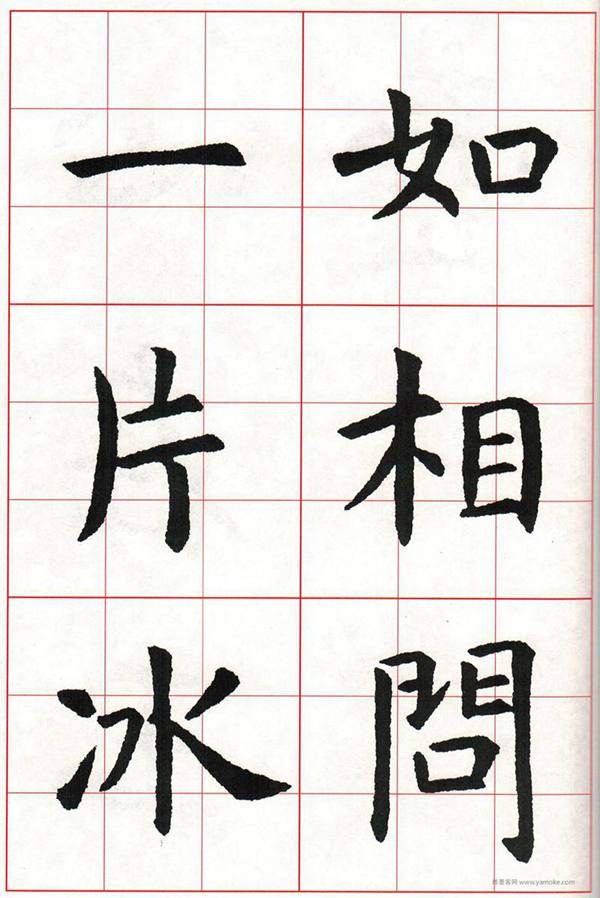 如相問
一片冰
雅墨客网 www.yamoke.com